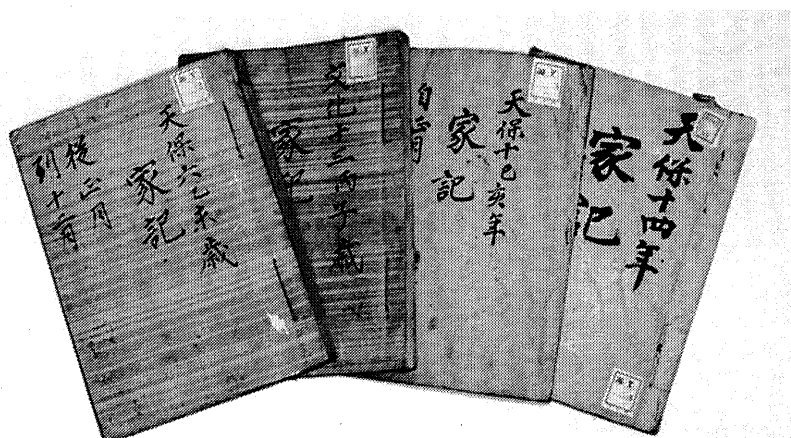 天保十四年
家記
天保十己亥年
家記
自正月
文化十三丙子歳
家記
天保六乙未歳
家記
従正月
到十